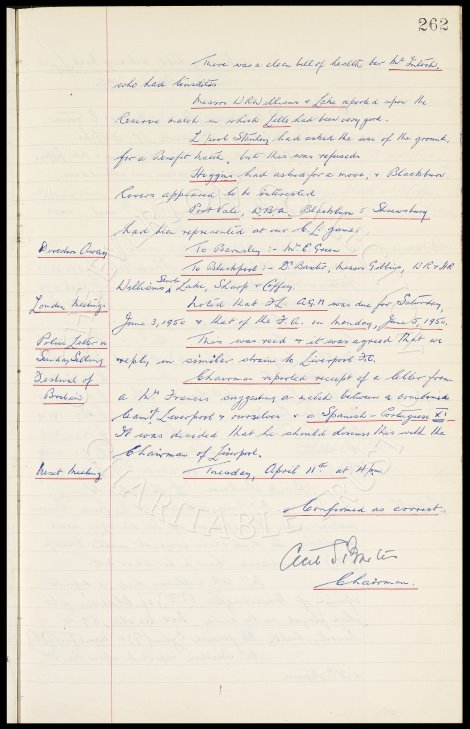 262
There was a clean bill of health bar McIntosh,
who had tonsilitis
Messrs W.R. Williams & Lake reported upon the
Reserve match in which Jells had been very good.
L'pool Stanley had asked the use of the ground,
for a Benefit Match, but this was refused.
Higgins had asked for a move, & Blackburn
Rovers appeared to be interested
Port Vale, W.B.A., Blackburn & Shrewsbury
had been represented at our C.L. games.
Directors Away
To Barnsley :- Mr. E. Green
To Blackpool :- Dr. Baxter, Messrs Gibbins, W.R & A.R
Williams, Searle, Lake, Sharp & Coffey.
London Meetings
Noted that F.L. A.G.M was due for Saturday,
June 3, 1950 & that of the F.A. on Monday, June 5, 1950.
Police Letter re
Sunday Selling
This was read & it was agreed that we
reply in similar strain to Liverpool F.C.
Festival of
Britain
Chairman reported receipt of a letter from
a Mr Francis suggesting a match between a combined
team of Liverpool & ourselves & a Spanish - Portuguese XI.
It was decided that he should discuss this with the
Chairman of Liverpool.
Next Meeting
Tuesday, April 11th at 4pm
Confirmed as correct.
Cecil S. Baxter
Chairman.
CHARITABLE TRUST